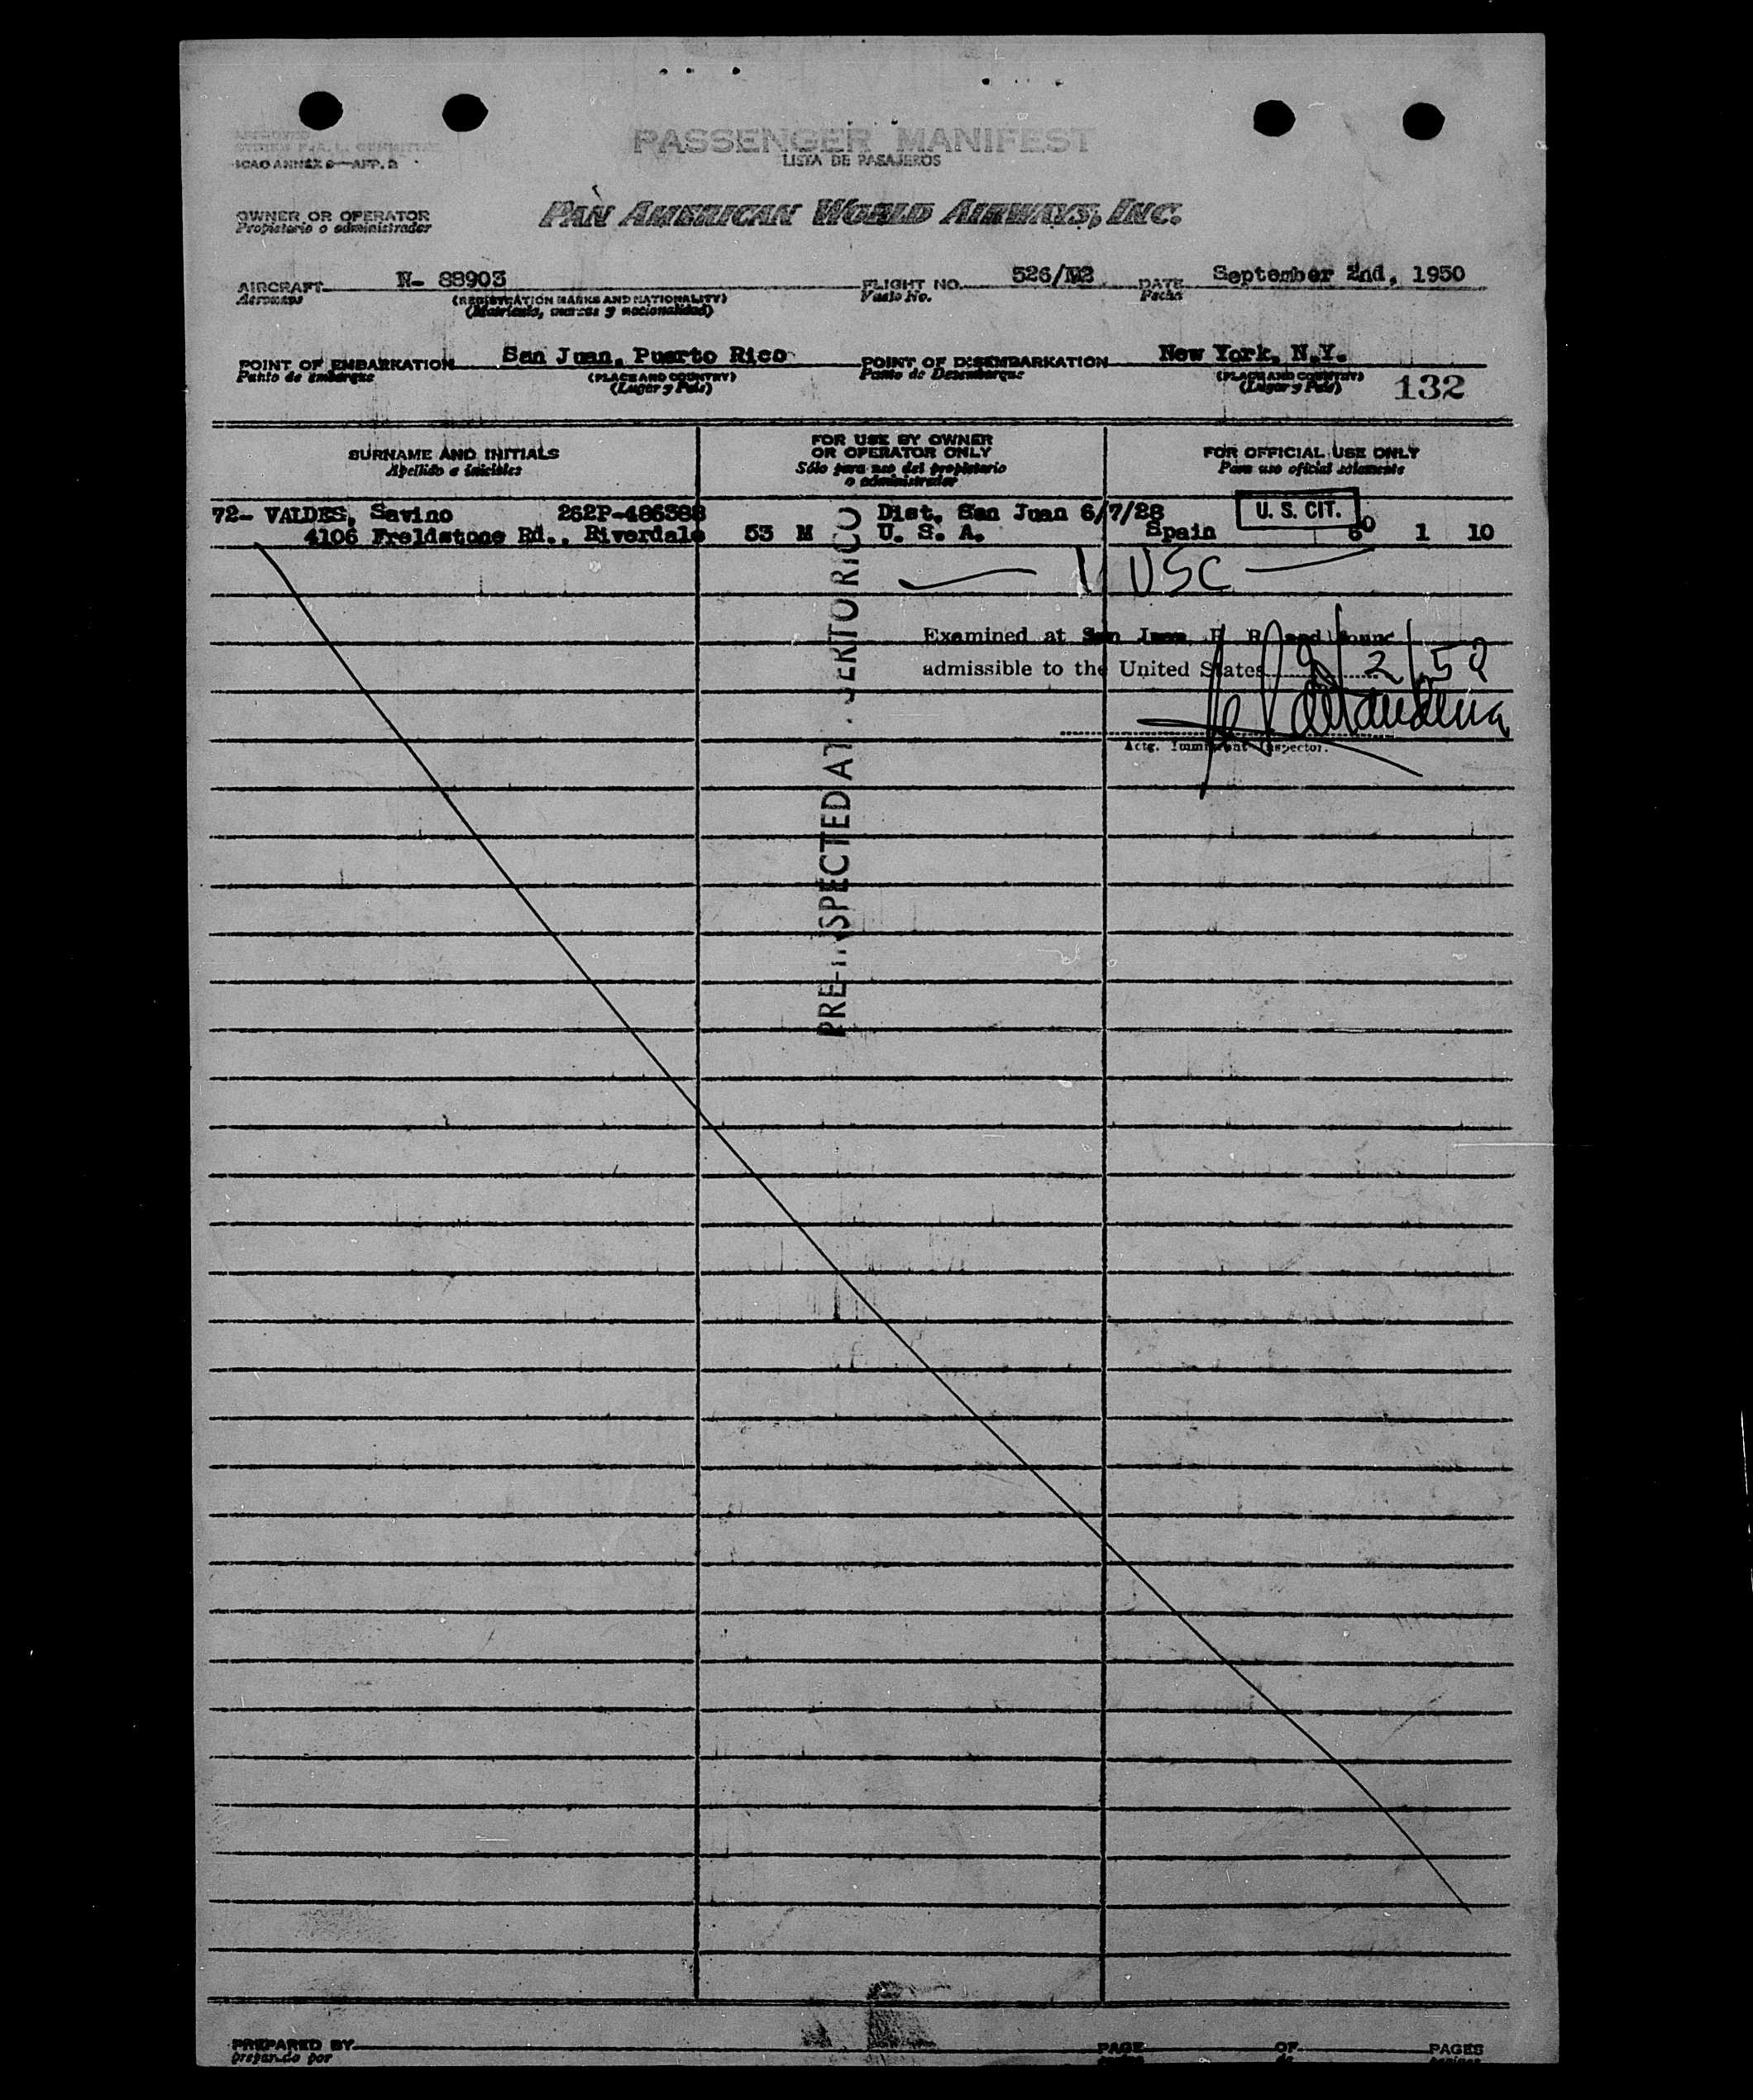 APPROVED
ICAO ANNEX 9—APP. D
PASSENGER MANIFEST
LISTA DE PASAJEROS
OWNER OR OPERATOR
Propietario o administrador
PAN AMERICAN WORLD AIRWAYS, INC.
AIRCRAFT N- 88903 FLIGHT NO. 526/M2 DATE September 2nd, 1950
Aeronave (REGISTRATION MARKS AND NATIONALITY) Vuelo No. Fecha
(Matrícula, marcas y nacionalidad)
POINT OF EMBARKATION San Juan, Puerto Rico POINT OF DISEMBARKATION New York, N.Y.
Punto de embarque (PLACE AND COUNTRY) Punto de Desembarque (PLACE AND COUNTRY)
(Lugar y País) (Lugar y País) 132
SURNAME AND INITIALS
Apellido e iniciales
FOR USE BY OWNER
OR OPERATOR ONLY
Sólo para uso del propietario
o administrador
FOR OFFICIAL USE ONLY
Para uso oficial solamente
72- VALDES, Savino 262P-486388 Dist. San Juan 6/7/28 U. S. CIT.
4106 Freldstone Rd., Riverdale 53 M U. S. A. Spain 1 10
1 USC
Examined at San Juan, P. R. and found
admissible to the United States 9/2/50
Actg. Immigrant Inspector.
PRE-INSPECTED AT
PREPARED BY PAGE OF PAGES
preparado por de